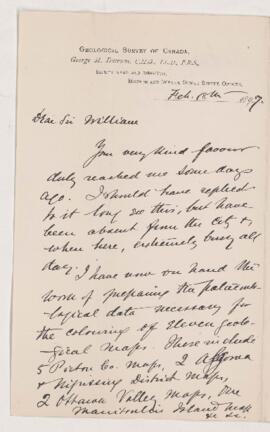 GEOLOGICAL SURVEY OF CANADA.
George M. Dawson, C.M.G., LL.D., F.R.S.
Feb. 18th 1897.
Dear Sir William
Your very kind favour
duly reached me some days
ago. I should have replied
to it long ere this, but have
been absent from the city &
when here, extremely busy all
day.
I have now on hand the
work of preparing the palæonto-
logical data necessary for
the colouring of eleven geolo-
gical maps. These include
5 Picton Co. maps, 2 Algoma
& Nipissing District maps,
2 Ottawa Valley maps, One
Manitoulin Island map
&c &c.